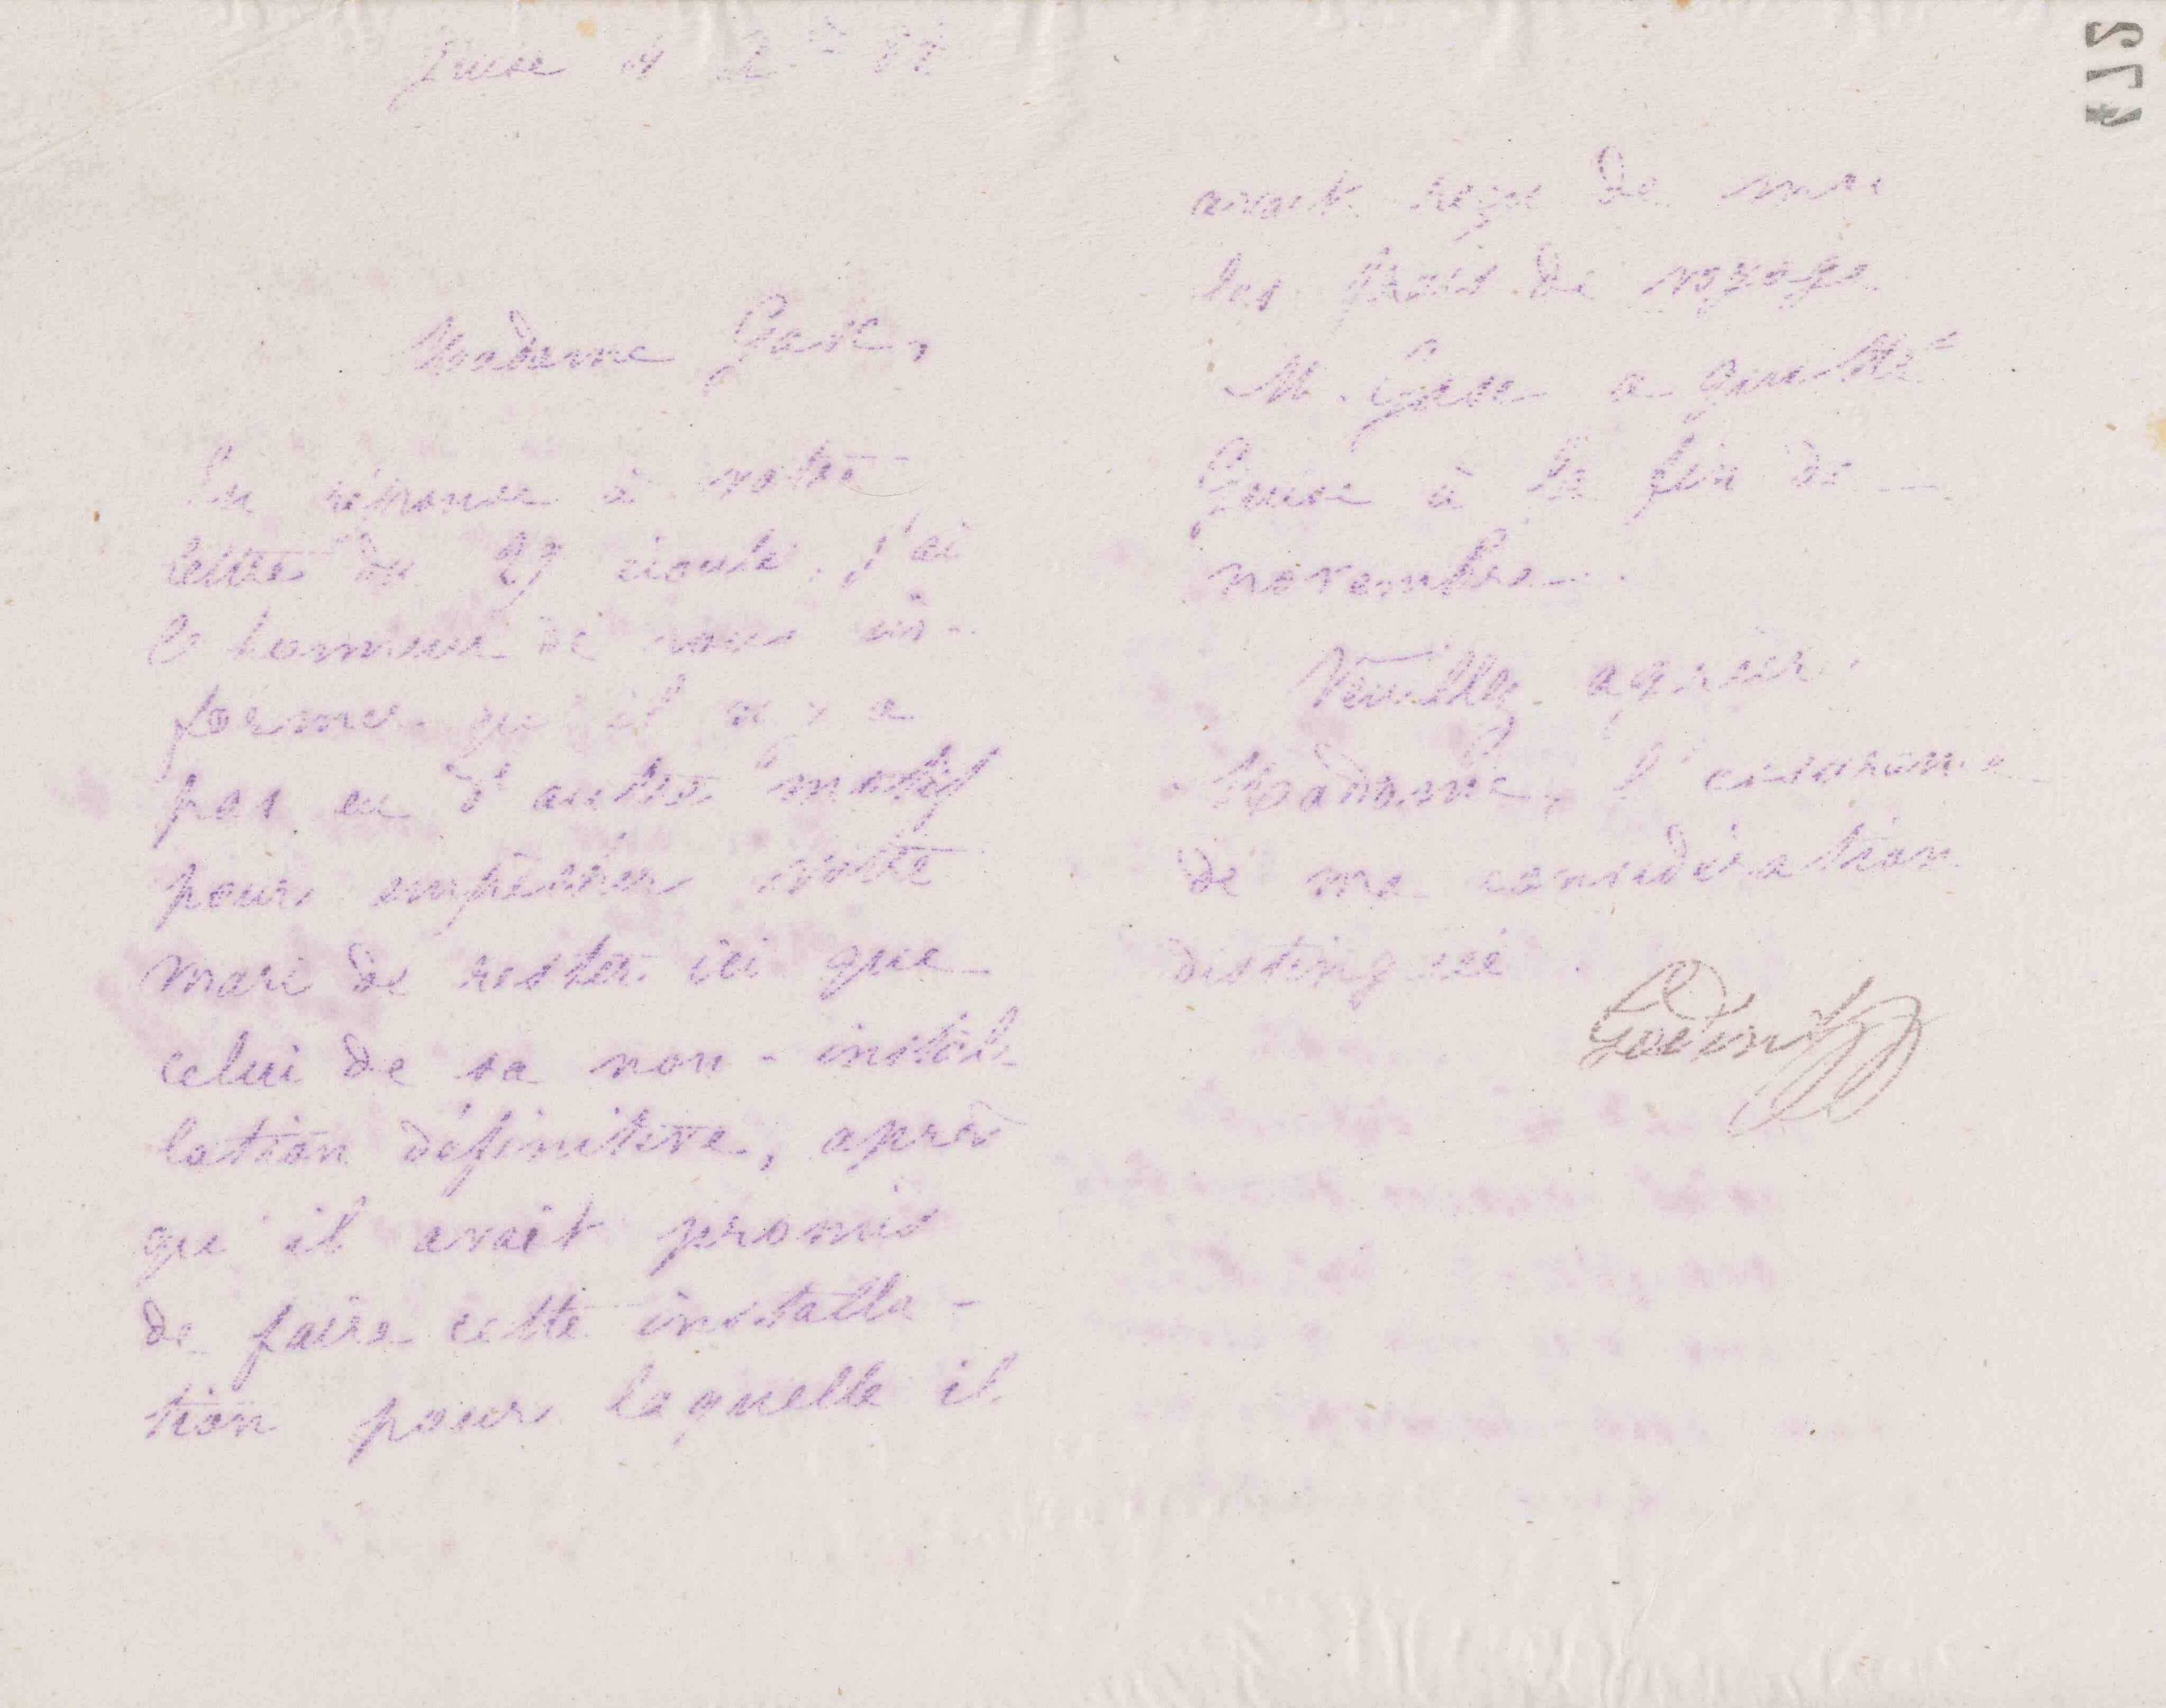 Guise
Madame Gase,
En réponse à votre
lettre du 27 écoulé, j'ai
l'honneur de vous in-
former qu'il n'y a
pas eu d'autre motif
pour empêcher votre
mari de rester ici que
celui de sa non-instal-
lation définitive, après
qu'il avait promis
de faire cette installa-
tion pour laquelle il
avait reçu de moi
les frais de voyage.
M. Gase a quitté
Guise à la fin de
novembre.
Veuillez agréer,
Madame, l'assurance
de ma considération
distinguée.
Godin